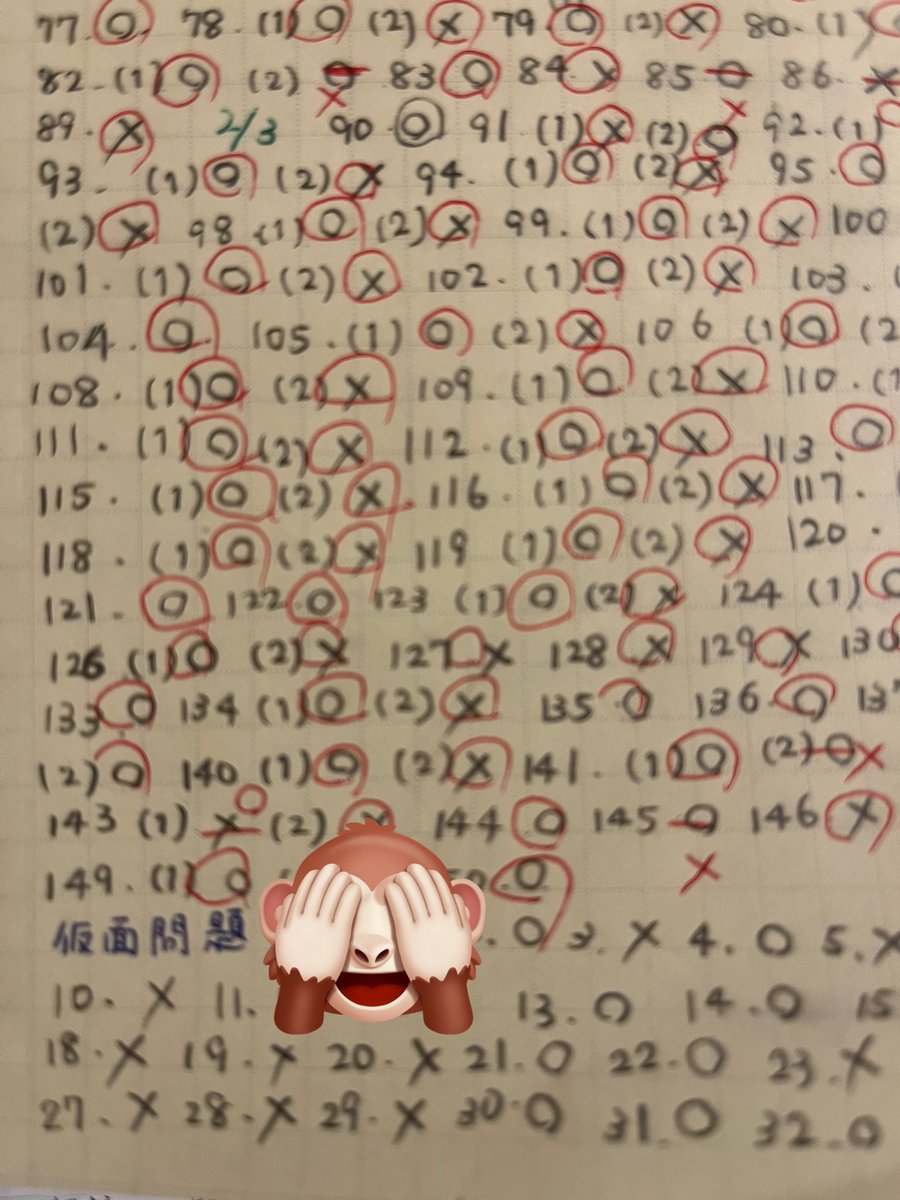 77. O 78. (1) O (2) X 79. O (2) X 80. (1)
82. (1) O (2) O X 83 O 84 X 85 O 86. X
89. X 2/3 90 O 91. (1) X (2) O X 92. (1)
93. (1) O (2) X 94. (1) O (2) X 95. O
(2) X 98 (1) O (2) X 99. (1) O (2) X 100
101. (1) O (2) X 102. (1) O (2) X 103.
104. O 105. (1) O (2) X 106 (1) O (2
108. (1) O (2) X 109. (1) O (2) X 110. (1
111. (1) O (2) X 112. (1) O (2) X 113. O
115. (1) O (2) X 116. (1) O (2) X 117.
118. (1) O (2) X 119 (1) O (2) X 120.
121. O 122 O 123 (1) O (2) X 124 (1) O
126 (1) O (2) X 127 X 128 X 129 X 130
133 O 134 (1) O (2) X 135 O 136. O 13
(2) O 140 (1) O (2) X 141. (1) O (2) O X
143 (1) X O (2) X 144 O 145 O X 146 X
149. (1) O O
仮面問題 . O 3. X 4. O 5. X
10. X 11. 13. O 14. O 15
18. X 19. X 20. X 21. O 22. O 23. X
27. X 28. X 29. X 30. O 31. O 32. O